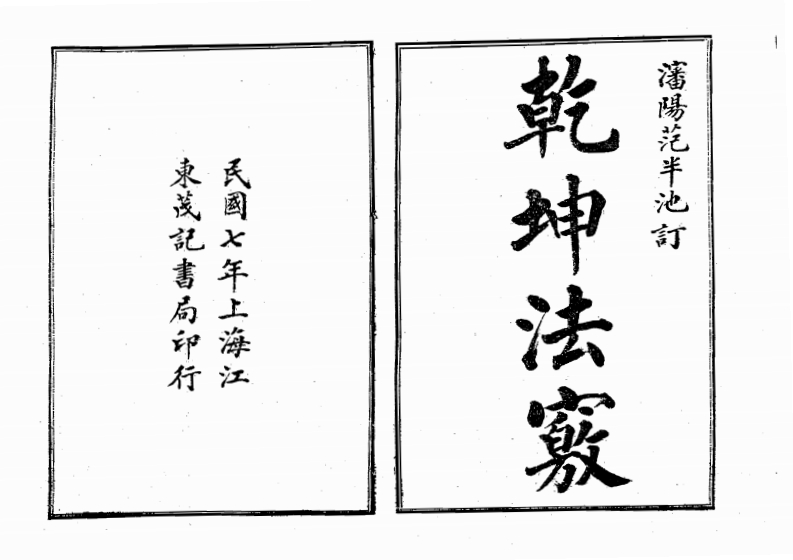 瀋陽范半池訂
乾坤法竅
民國七年上海江
東茂記書局印行